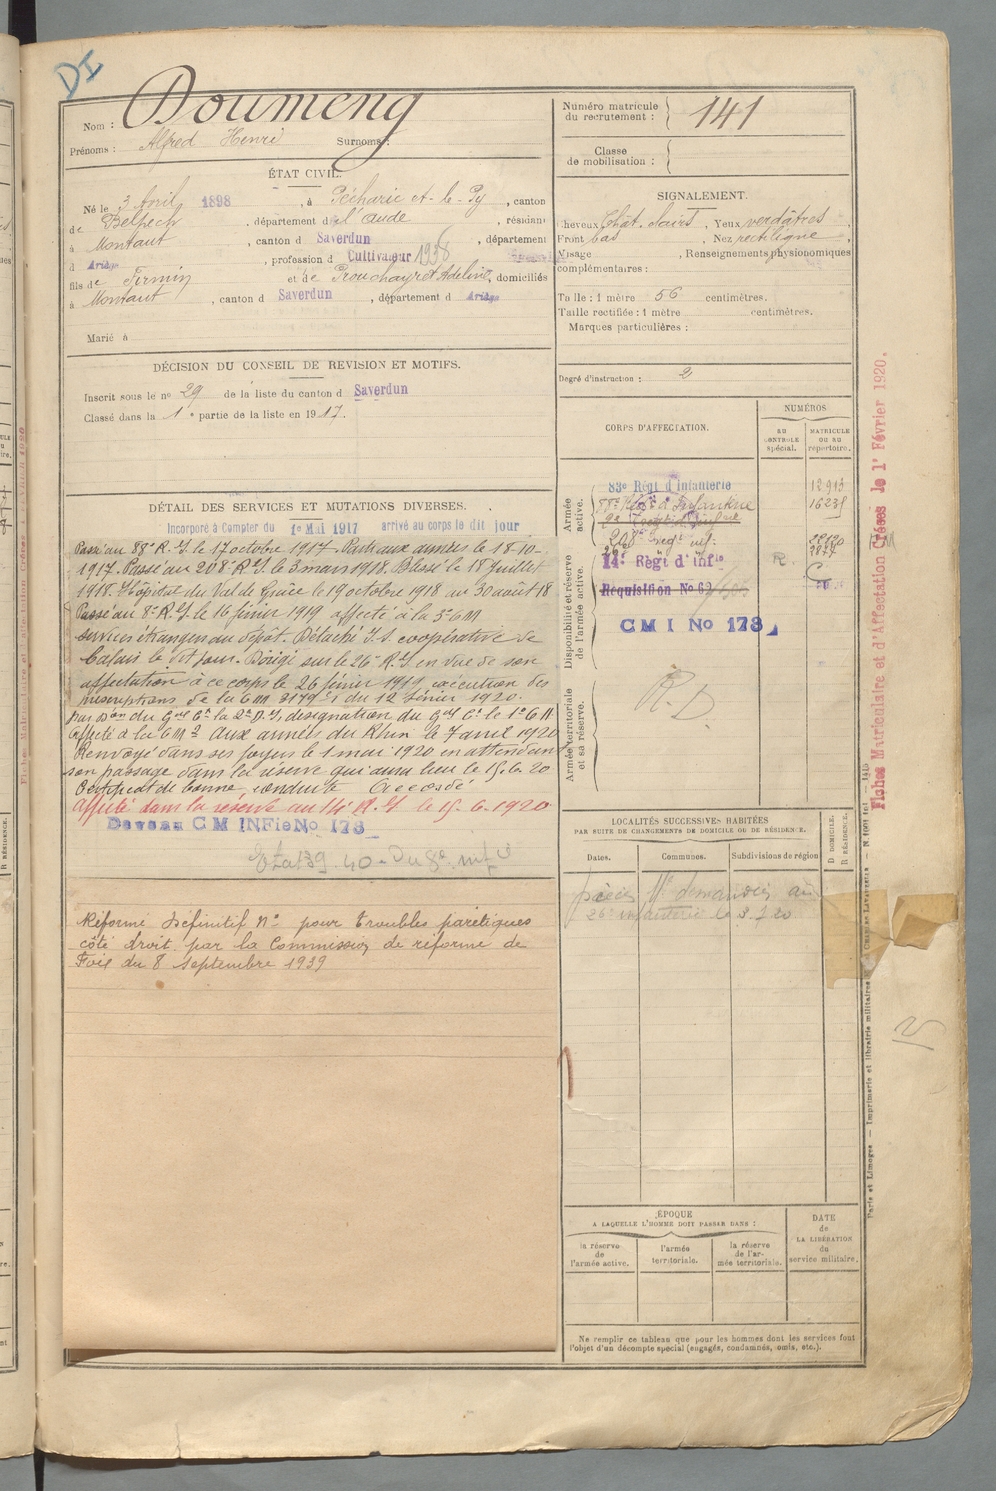 DI
Nom : Doumeng
Prénoms : Alfred Henri Surnoms :
ÉTAT CIVIL.
Né le 3 Avril 1898, à Pécharic et-le-Py, canton
de Belpech, département de l'Aude, résidant
à Montaut, canton d Saverdun, département
d Ariège, profession d Cultivateur 1938
fils de Firmin et de Prouchayret Adeline, domiciliés
à Montaut, canton d Saverdun, département d Ariège
Marié à
DÉCISION DU CONSEIL DE REVISION ET MOTIFS.
Inscrit sous le no 29 de la liste du canton d Saverdun
Classé dans la 1e partie de la liste en 1917.
DÉTAIL DES SERVICES ET MUTATIONS DIVERSES.
Incorporé à Compter du 1er Mai 1917 arrivé au corps le dit jour
Passé au 88e R.I. le 17 octobre 1917. Parti aux armées le 18-10-
1917. Passé au 208e R.I. le 3 mars 1918. Blessé le 18 juillet
1918. Hôpital du Val de Grâce le 19 octobre 1918 au 30 août 18
Passé au 8e R.I. le 16 février 1919 affecté à la 3e C M
services étrangers au dépôt. Détaché I.S. coopérative de
Calais le dit jour. Dirigé sur le 26e R.I. en vue de son
affectation à ce corps le 26 février 1919 exécution des
prescriptions de la C M 3179 du 12 février 1920.
par don du Gal Ct la 2e D.I. désignation du Gal Ct le 1er C A
Affecté à la C M 2 Aux armées du Rhin le 7 avril 1920
Renvoyé dans ses foyers le 1 mai 1920 en attendant
son passage dans la réserve qui aura lieu le 15.6.20
Certificat de bonne conduite Accordé
Affecté dans la réserve au 14e R.I. le 15-6-1920
CM INFie No 173
Réformé Définitif No pour troubles parétiques
côté droit par la Commission de réforme de
Foix du 8 septembre 1939
Numéro matricule du recrutement : 141
Classe de mobilisation :
SIGNALEMENT.
Cheveux Chât. clairs, Yeux verdâtres
Front bas, Nez rectiligne,
Visage, Renseignements physionomiques
complémentaires :
Taille : 1 mètre 56 centimètres.
Taille rectifiée : 1 mètre centimètres.
Marques particulières :
Degré d'instruction : 2
CORPS D'AFFECTATION.
NUMÉROS
AU CONTROLE spécial.
MATRICULE OU AU répertoire.
Armée active.
83e Régt d'Infanterie 12913
88e Régt d'Infanterie
208e Régt inf.
Disponibilité et réserve de l'armée active.
14e Régt d'infie R.
Réquisition No 62
C M I No 173
Armée territoriale et sa réserve.
R.D.
LOCALITÉS SUCCESSIVES HABITÉES
PAR SUITE DE CHANGEMENTS DE DOMICILE OU DE RÉSIDENCE.
Dates.
Communes.
Subdivisions de région
D. DOMICILE.
R. RÉSIDENCE.
pièces Mle demandées au
26e infanterie le 3.7.20
ÉPOQUE
A LAQUELLE L'HOMME DOIT PASSER DANS :
la réserve de l'armée active.
l'armée territoriale.
la réserve de l'armée territoriale.
DATE de LA LIBÉRATION du service militaire.
Ne remplir ce tableau que pour les hommes dont les services font
l'objet d'un décompte spécial (engagés, condamnés, omis, etc.).
Fiches Matriculaire et d'Affectation Créses le 1er Février 1920.